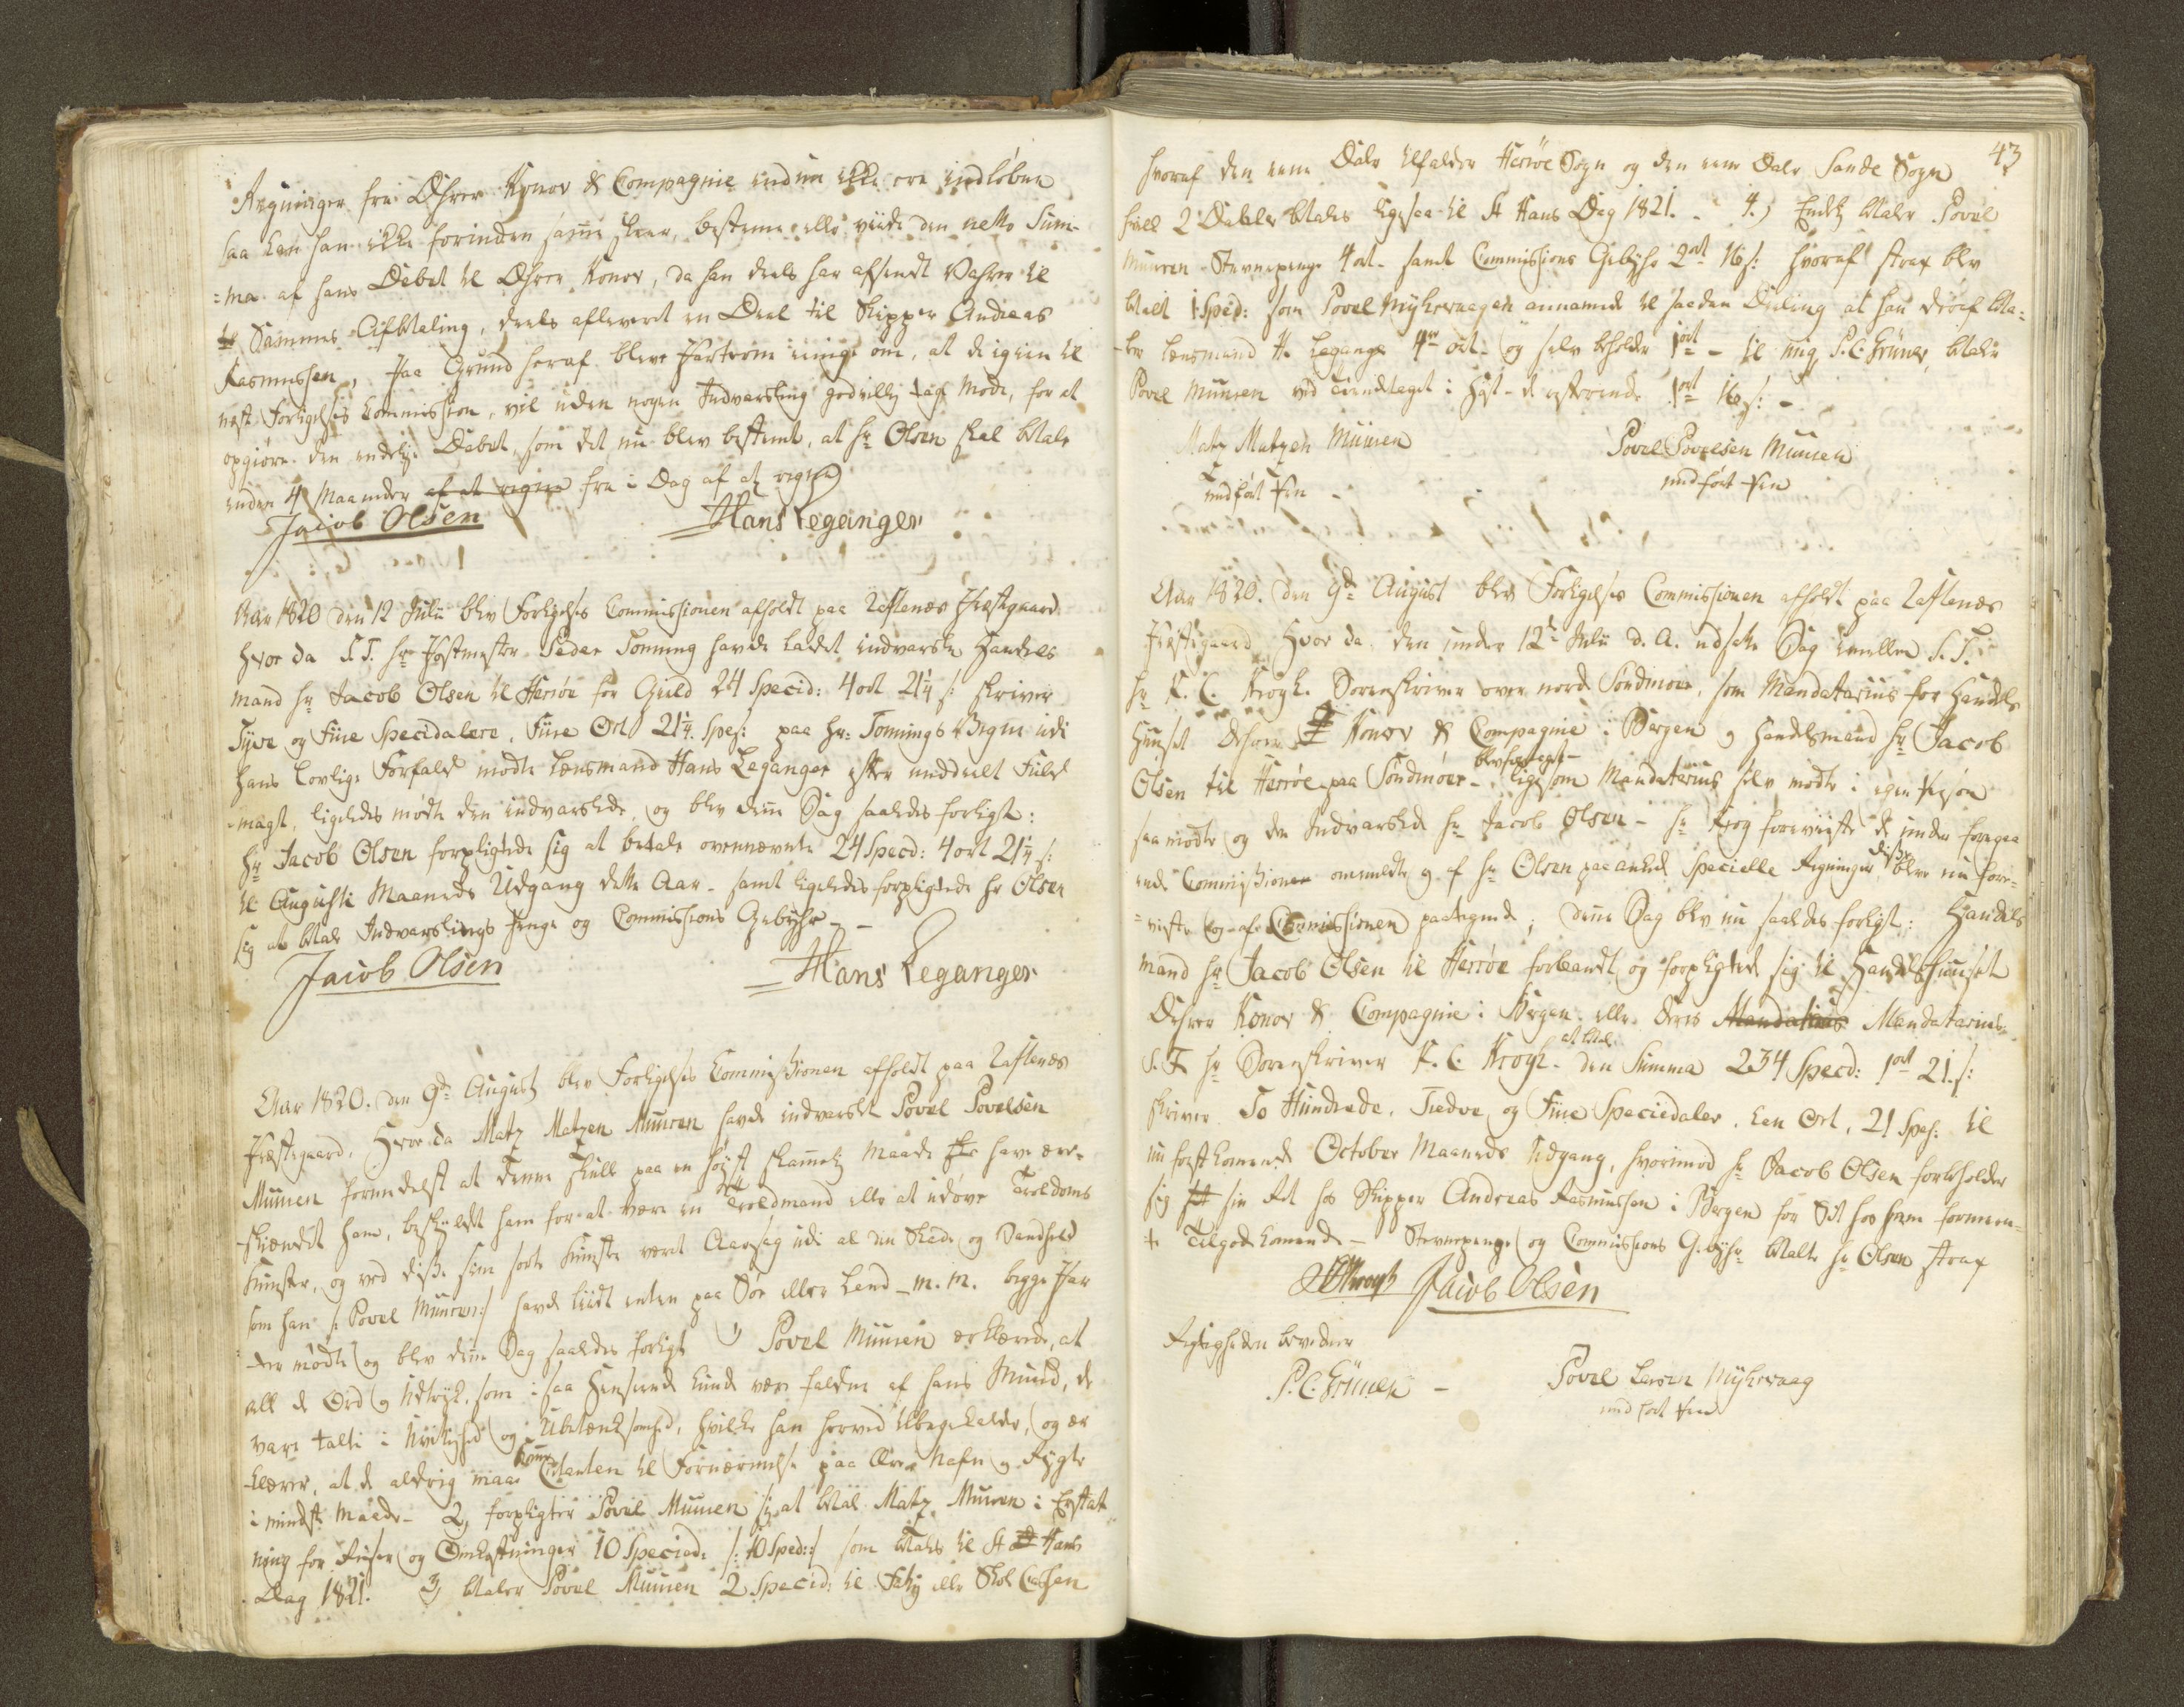 Regninger fra Dhrrer Konov & Compagnie endnu ikke ere indløbne
saa kan han ikke forinden samme skeer, bestemme eller viide den netto Sum-
=ma af hans Debet til Dhrrer Konov, da han deels har afsendt Vahrer til
Sammes Afbetaling, deels afleveret en Deel til Skipper Andreas
Rasmussen, Paa Grund heraf bleve Parterne eenige om, at de igien til
næste Forligelses Commission, vil uden nogen Indvarsling godvillig tage Møde, for at
opgiøre den endelige Debet, som det nu blev bestemt, at Hr Olsen skal betale
inden 4 Maaneder af at regne fra i Dag af at regne
Jacob Olsen Hans Leganger
Aar 1820 den 12 Julii blev Forligelses Commissionen afholdt paa Læstenæs Præstegaard
hvor da S. T. Hr Postmester Peder Tonning havde ladet indvarsle Handels
mand Hr Jacob Olsen til Herrøe for Gield 24 Specid: 4 ort 21¼ s: skriver
Tyve og Fiire Specidalere, Fiire Ort 21¼ Spes: paa Hr: Tonnings Vegne udi
hans lovlige Forfald mødte Lensmand Hans Leganger efter meddeelt Fuld
magt, ligeledes mødte den indvarslede, og blev denne Sag saaledes forligt:
Hr Jacob Olsen forpligtede sig at betale ovennævnte 24 Specd: 4 ort 21¼ s:
til Augusti Maaneds Udgang dette Aar - samt ligeledes forpligtede Hr Olsen
sig at betale Indvarslings Penge og Commissions Gebyhr - -
Jacob Olsen Hans Leganger
Aar 1820. den 9de August blev Forligelses Commissionen afholdt paa Læstenæs
Præstegaard, hvor da Matz Matzen Muuren havde indvarslet Povel Povelsen
Muuren formedelst at denne skulle paa en høyst skammelig Maade have ær-
skiændet ham, beskyldt ham for at være en Troldmand eller at udøve Troldoms
Kunster, og ved disse sine sorte Kunster været Aarsag udi al den Skade og Vanheld
som han /: Povel Muuren:/ havde liidt enten paa Søe eller Land - m. m. begge Par
-ter mødte og blev denne Sag saaledes forligt 1) Povel Muuren erklærede, at
all de Ord og Udtryk, som i saa Henseende kunde være faldne af hans Mund, de
vare talte i Hvilighed og Ubetænksomhed, hvilke han herved tilbagekalder, og er
klærer, at de aldrig maae komme Citanten til Fornærmelse paa Ære Nafn og Rygte
i mindste Maade - 2, forpligter Povel Muuren sig at betale Matz Muuren i Erstat
ning for Reiser og Omkostninger 10 Specied: /: 10 Sped:/ som betales til St Hans
Dag 1821. 3, betaler Povel Muuren 2 Specid: til Fattig eller Skole Cassen
43
hvoraf den eene Daler tilfalder Herrøe Sogn og den eene Daler Sande Sogn
hvilke 2 Daler betales ligesaa til St Hans Dag 1821. - 4.) Endelig betaler Povel
Muuren Stevnepenge 4 ort - samt Commissions Gebyhr 2 ort 16 s: hvoraf strax blev
betalt 1 Sped: som Povel Myhrevaagen annammede til saadan Deeling at han deraf beta=
-ler Lensmand H. Leganger 4re ort - og selv beholder 1 ort - til mig P. C. Grüner, betaler
Povel Muuren ved Tiendtaget i Høst - de resterende 1 ort 16 s: -
Matz Matzen Muuren Povel Povelsen Muuren
med ført Pen - med ført Pen
Aar 1820. den 9de August blev Forligelses Commissionen afholdt paa Læstenæs
Præstegaard, hvor da den under 12te Julii d. A. udsatte Sag imellem S. T.
Hr K. C. Krogh. Sorenskriver over nord Søndmøer, som Mandatarius for Handels
Huuset Dhrrer Konov & Compagnie i Bergen og Handelsmand Hr Jacob
Olsen til Herrøe paa Søndmøer - blev foretaget - ligesom Mandatarius selv mødte i egen Person
saa mødte og den Indvarslede Hr Jacob Olsen - Hr Krog foreviiste de under foregaa
ende Commissioner ommeldte og af Hr Olsen paaankede specielle Regninger, disse bleve nu fore=
=viiste og af Commissionen paategnede; denne Sag blev nu saaledes forligt: Handels
mand Hr Jacob Olsen til Herrøe forbandt og forpligtede sig til Handelshuuset
Dhrrer Konov & Compagnie i Bergen eller deres Mandatarius Mandatarius
S. T. Hr Sorenskriver K. C. Krogh - at betale den Summa 234 Specd: 1 ort 21 s:
skriver To Hundrede, Tredve og Fiire Speciedaler, Een Ort, 21 Spes: til
nu først kommende October Maaneds Udgang, hvorimod Hr Jacob Olsen forbeholder
sig sin Ret hos Skipper Andreas Rasmussen i Bergen for Sit hos ham formeen-
te Tilgodekommende - Stevnepenge og Commissions Gebyhr betalte Hr Olsen strax
KCKrogh Jacob Olsen
Rigtigheden bevidner
P. C. Grüner - Povel Larsen Myhrevaag
med ført Pen